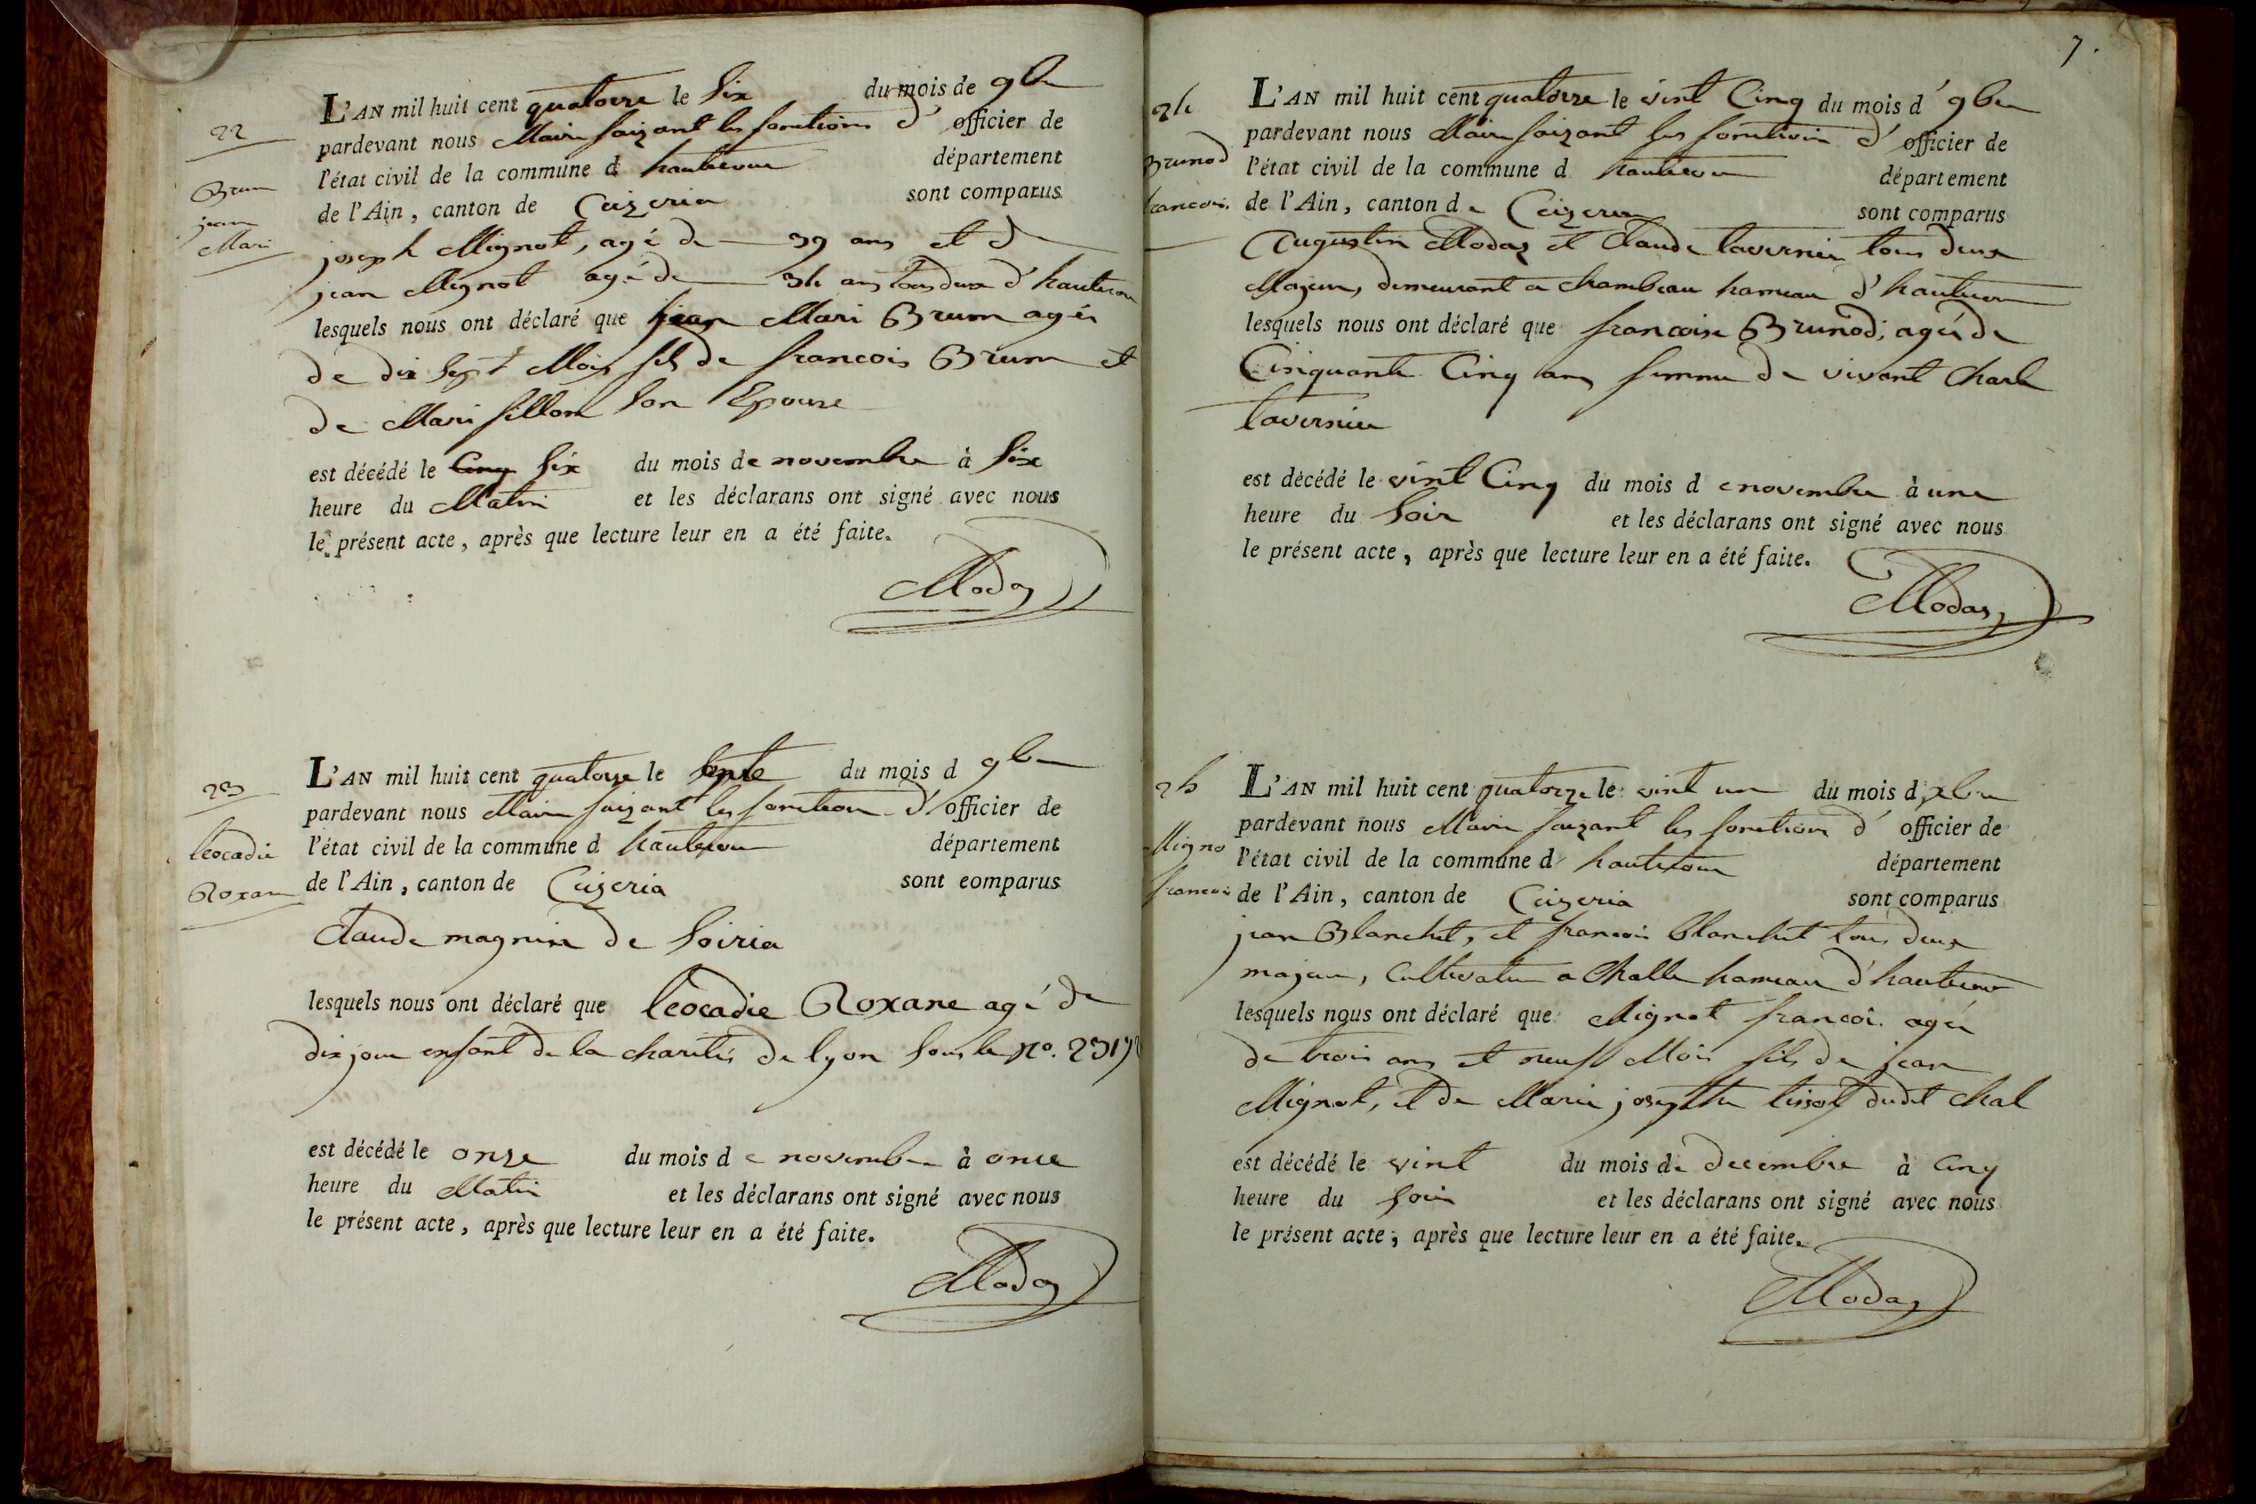 22
Brun
jean
Mari
L'AN mil huit cent quatorze le Six du mois de 9bre
pardevant nous Maire faizant les fonctions d' officier de
l'état civil de la commune d hautecour département
de l'Ain, canton de Ceizeria sont comparus
joseph Mignot, agé de 39 ans et d
jean Mignot agé de 34 ans tous deux d'hautecour
lesquels nous ont déclaré que jean Mari Brun agé
de dix Sept Mois fils de francois Brun et
de Mari fillon Son Epouze
est décédé le Cinq Six du mois de novembre à Six
heure du Matin et les déclarans ont signé avec nous
le présent acte, après que lecture leur en a été faite.
Modas
23
leocadie
Roxane
L'AN mil huit cent quatorze le du mois d 9bre
pardevant nous Maire faizant les fonctions d' officier de
l'état civil de la commune d hautecour département
de l'Ain, canton de Ceizeria sont comparus
Claude magnin de Soiria
lesquels nous ont déclaré que leocadie Roxane agé de
dix jour enfant de la charités de lyon Sous le No.
est décédé le onze du mois de novembre à onze
heure du Matin et les déclarans ont signé avec nous
le présent acte, après que lecture leur en a été faite.
Modas
7.
24
Brunod
francois
L'AN mil huit cent quatorze le vint Cinq du mois d' 9bre
pardevant nous Maire faizant les fonctions d' officier de
l'état civil de la commune d hautecour département
de l'Ain, canton de Ceizeria sont comparus
Augustin Modas et Claude tavernier tous deux
Majeurs, demeurant a Chambeau hameau d'hautecour
lesquels nous ont déclaré que francoise Brunod, agé de
Cinquante Cinq ans femme de vivant Charle
tavernier
est décédé le vint Cinq du mois de novembre à une
heure du Soir et les déclarans ont signé avec nous
le présent acte, après que lecture leur en a été faite.
Modas
25
Migno
francois
L'AN mil huit cent quatorze le vint un du mois d xbre
pardevant nous Maire faizant les fonctions d' officier de
l'état civil de la commune d' hautecour département
de l'Ain, canton de Ceizeria sont comparus
jean Blanchet, et francois blanchet tous deux
majeur, Cultivateur a Challe hameau d'hautecour
lesquels nous ont déclaré que Mignot francoi agé
de trois ans et neuf Mois fils de jean
Mignot, et de Marie josephte tissot dudit Chal
est décédé le vint du mois de decembre à Cinq
heure du Soir et les déclarans ont signé avec nous
le présent acte, après que lecture leur en a été faite.
Modas